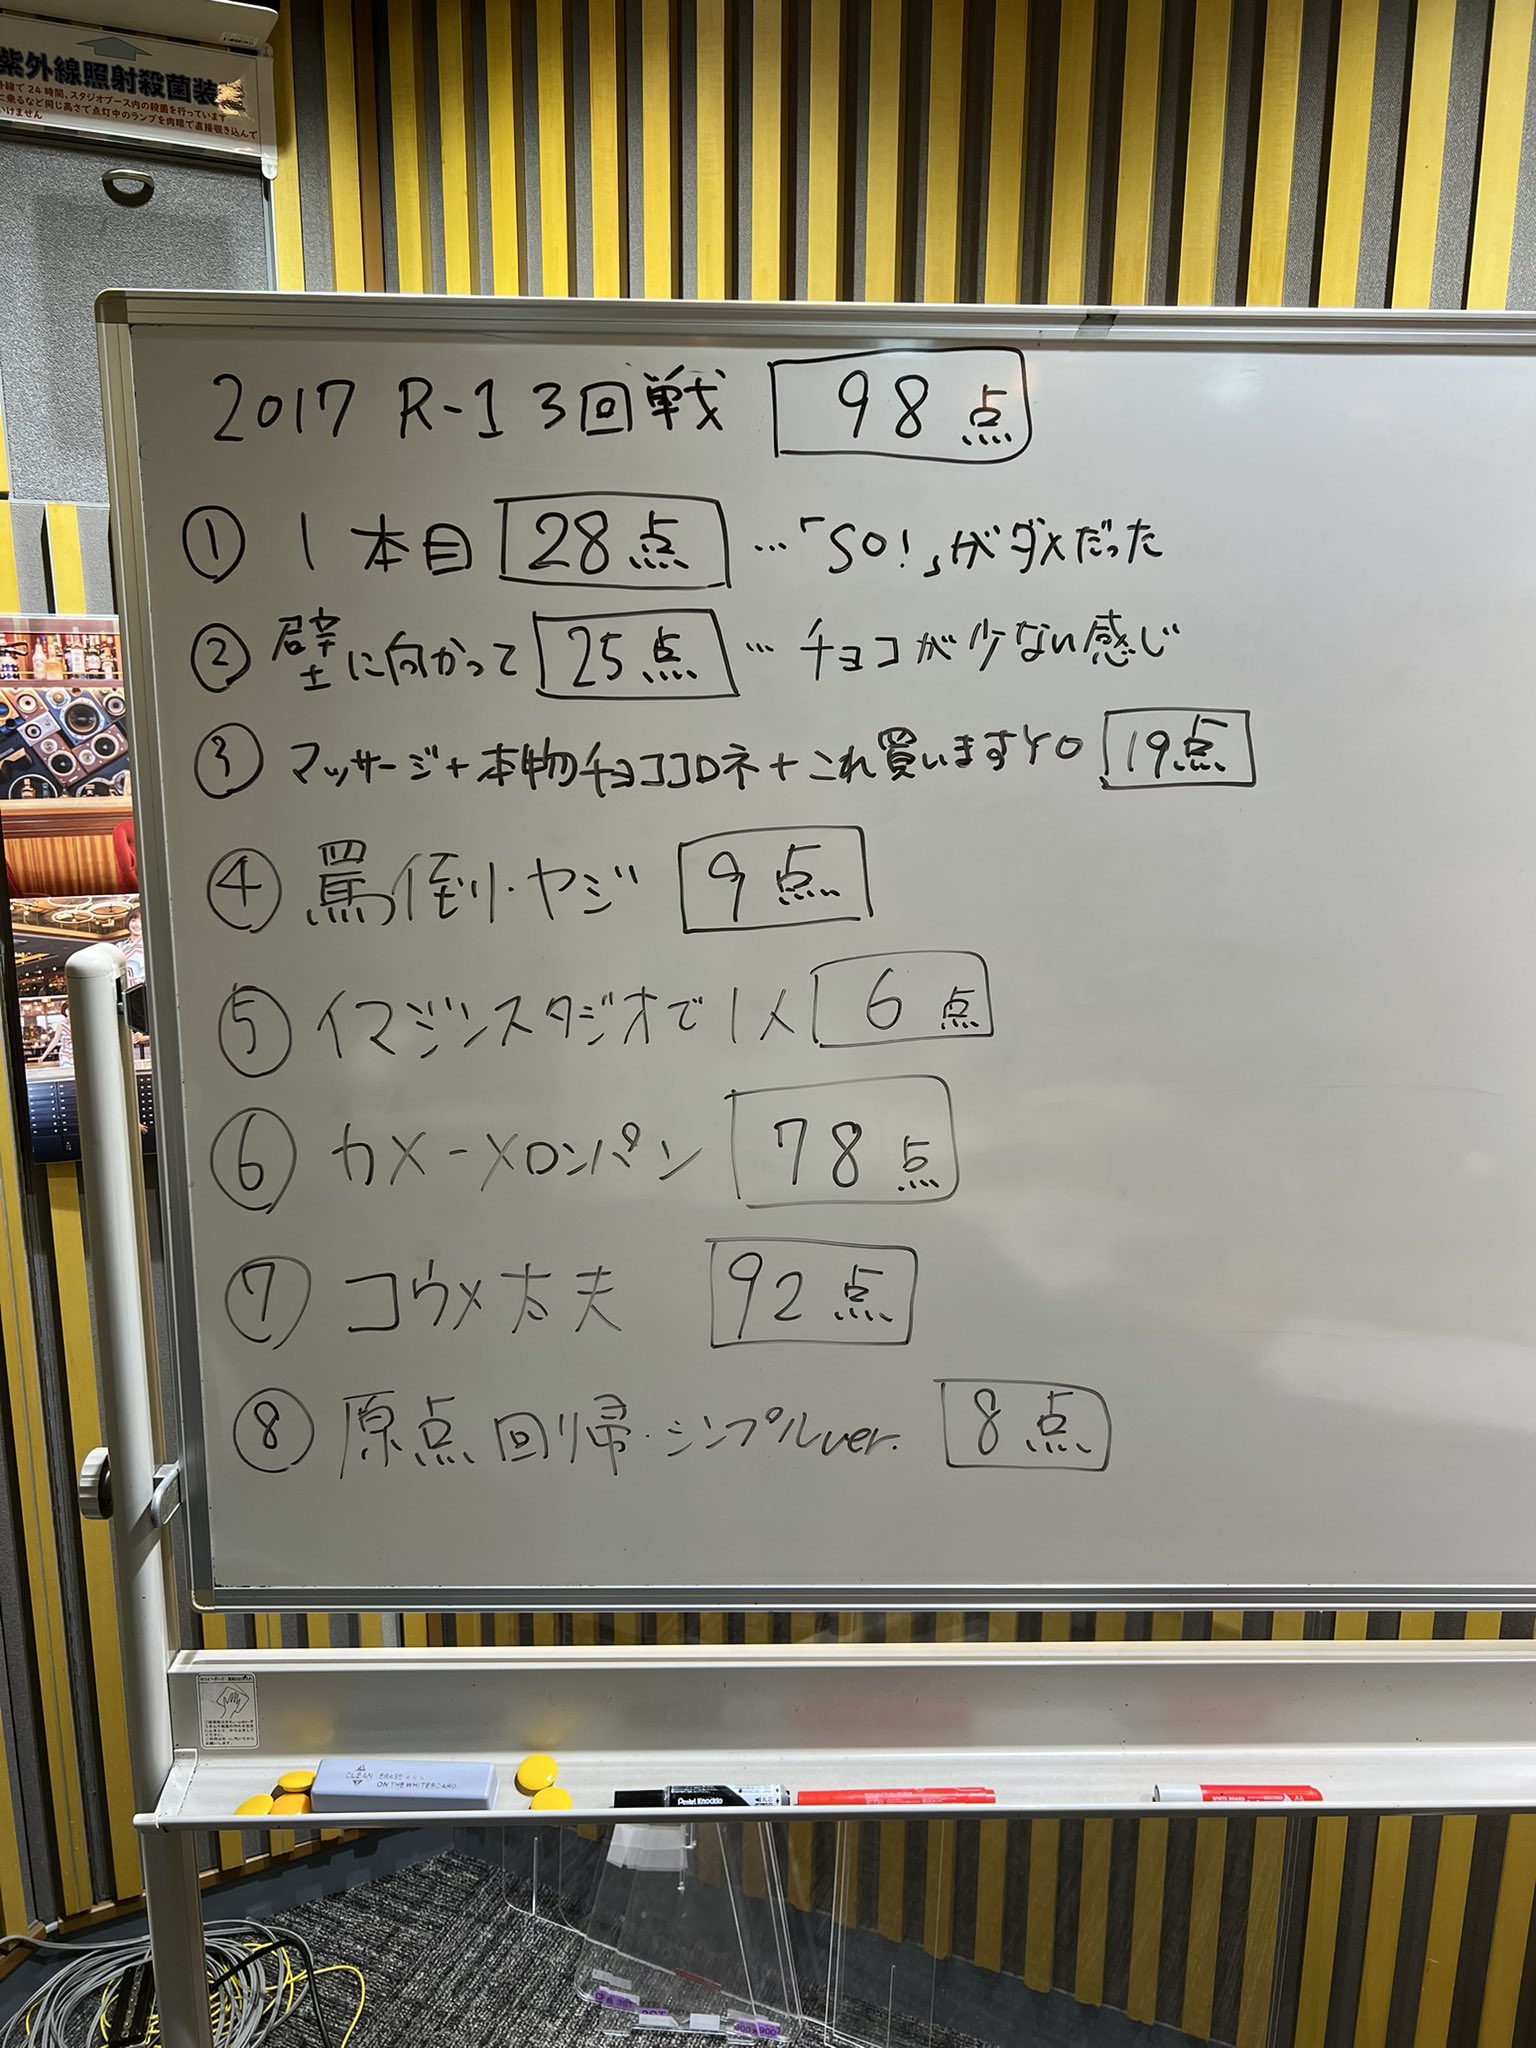 紫外線照射殺菌装
外線で24時間、スタジオブース内の殺菌を行っています
に乗るなど同じ高さで点灯中のランプを肉眼で直接覗き込んで
いけません
2017 R-1 3回戦 98点
① 1本目 28点 …「SO!」がダメだった
② 壁に向かって 25点 … チョコが少ない感じ
③ マッサージ+本物チョココロネ+これ買いますYO 19点
④ 罵倒・ヤジ 9点
⑤ イマジンスタジオで1メ 6点
⑥ カメーメロンパン 78点
⑦ コウメ太夫 92点
⑧ 原点回帰・シンプルver. 8点
CLEAN ERASER
ON THE WHITEBOARD
Pentel Knockle